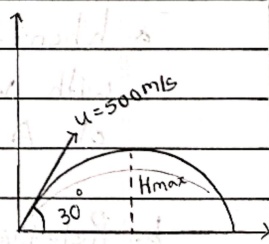 u=500m/s
Hmax
30°